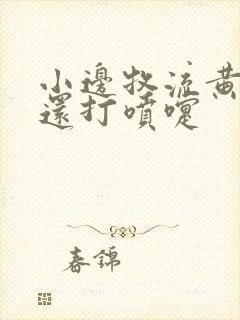 小邊牧流黃
還打噴嚏
春錦